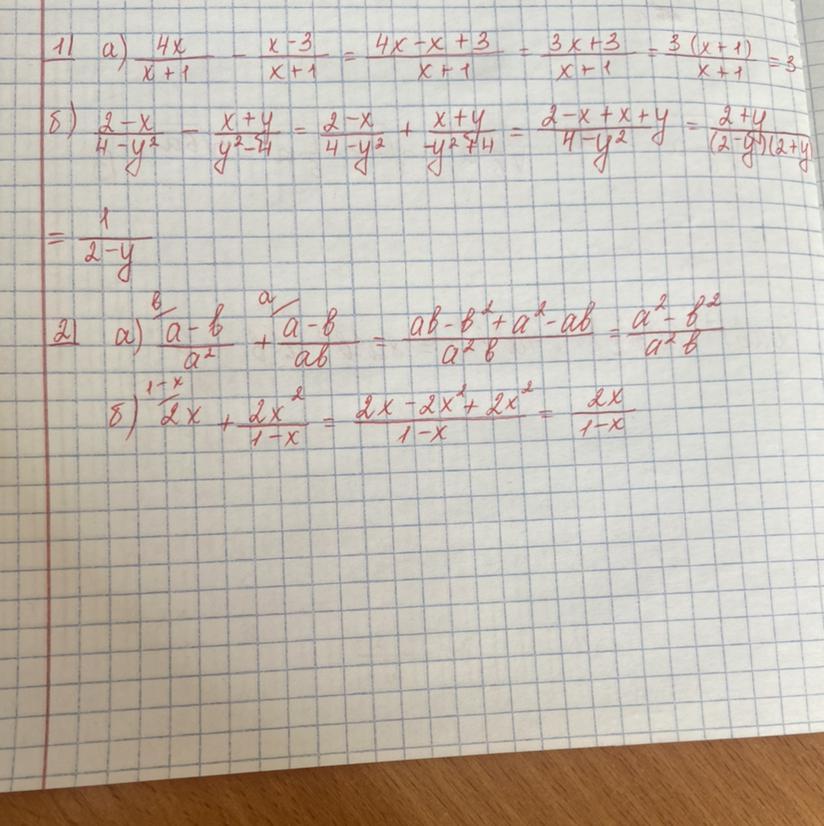 1) а) 4x/(x+1) - (x-3)/(x+1) = (4x-x+3)/(x+1) = (3x+3)/(x+1) = 3(x+1)/(x+1) = 3
б) (2-x)/(4-y²) - (x+y)/(y²-4) = (2-x)/(4-y²) + (x+y)/(-y²+4) = (2-x+x+y)/(4-y²) = (2+y)/((2-y)(2+y)
= 1/(2-y)
2) а) в/ (a-в)/a² + а/ (a-в)/(aв) = (aв-в²+a²-aв)/(a²в) = (a²-в²)/(a²в)
б) 1-x/ 2x + 2x²/(1-x) = (2x-2x²+2x²)/(1-x) = 2x/(1-x)